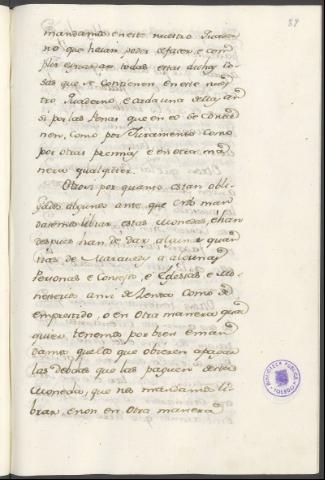 89
mandamos en este nuestro Quader
no que hayan poder de facer, e com
plir e guardar todas estas dichas co
sas que se contienen en este nues
tro Quaderno, e cada una dellas an
si por las Penas que en èl se contie
nen, como por Juramento como
por otras premias e en otra ma
nera qualquier.
Otrosi por quanto estan obli
gados algunos ante que Nos man
dasemos librar estas Monedas, è han
despues han de dar algunas quan
tias de Maravedis a algunas
Personas e Concejos, e Eglesias e Mo
nesterios ansi de Renta como de
emprestido, o en otra manera qual
quier tenemos por bien e man
damos que lo que obieren a pagar
las debdas que las paguen desta
Moneda, que nos mandamos li
brar, e non en otra manera
BIBLIOTECA PUBLICA
TOLEDO